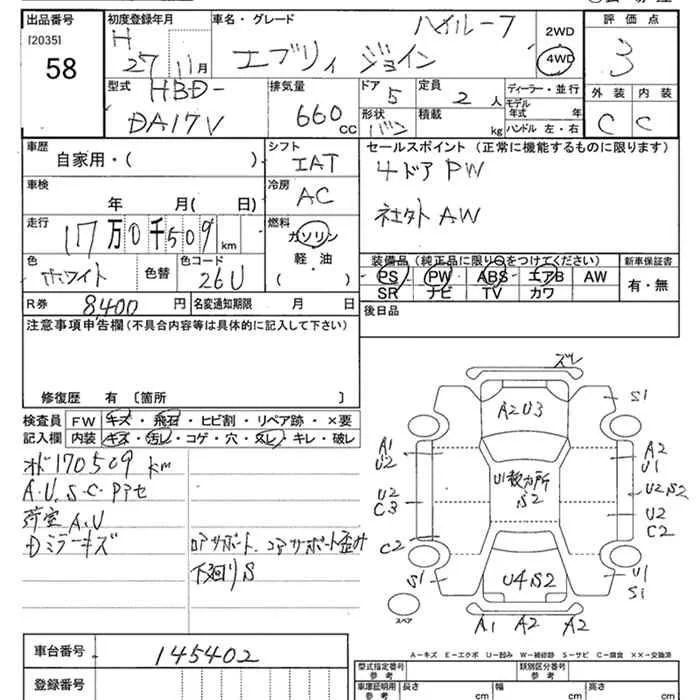 出品番号
[2035]
58
初度登録年月
H 27 11月
車名・グレード
ハイルーフ
エブリィ ジョイン
2WD
4WD
評価点
3
外装 内装
C C
型式
HBD-
DA17V
排気量
660 CC
ドア 5
形状 バン
定員 2 人
積載 kg
ディーラー・並行
モデル年式 年
ハンドル 左・右
車歴
自家用・( )
シフト
IAT
セールスポイント (正常に機能するものに限ります)
4ドア PW
社外 AW
車検
年 月( 日)
冷房
AC
走行
17万0千509 km
燃料
ガソリン
軽・油
( )
色
ホワイト
色替
色コード
26U
装備品 (純正品に限り○をつけてください)
PS PW ABS エアB AW
SR ナビ TV カワ
新車保証書
有・無
R券 8,400 円
名変通知期限 月 日
後日品
注意事項申告欄 (不具合内容等は具体的に記入して下さい)
修復歴 有 〔箇所 〕
検査員記入欄
FW キズ・飛石・ヒビ割・リペア跡・×要
内装 キズ・汚レ・コゲ・穴・スレ・キレ・破レ
メーター 170509 km
A.U.S.C
荷室 A.U
Dミラーキズ
コアサポート歪み
下廻りS
ズレ
A2U3
S1
A1
U2
A2
U1
U2
C3
U1数カ所
S2
U2S2
U2
C2
C2
S1
U4S2
U1
S1
スペア
A1 A2 A2
A-キズ E-エクボ U-凹み W-補修跡 S-サビ C-腐食 ××-交換済
車台番号
145402
登録番号
型式指定番号
参考
類別区分番号
参考
車庫証明用
参考
長さ cm
幅 cm
高さ cm